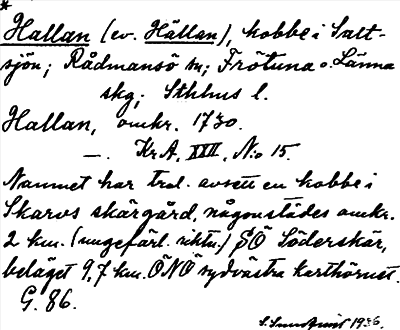 *
Hallan (ev. Hällan), kobbe i Salt-
sjön; Rådmansö sn; Frötuna o. Länna
skg; Sthlms l.
Hallan, omkr. 1730.
—. Kr.A, XXII, N:o 15.
Namnet har trol. avsett en kobbe i
Skarvs skärgård, någonstädes omkr.
2 km. (ungefärl. riktn.) SO Söderskär,
beläget 9,7 km. ONO sydvästra karthörnet.
G. 86.
1936.